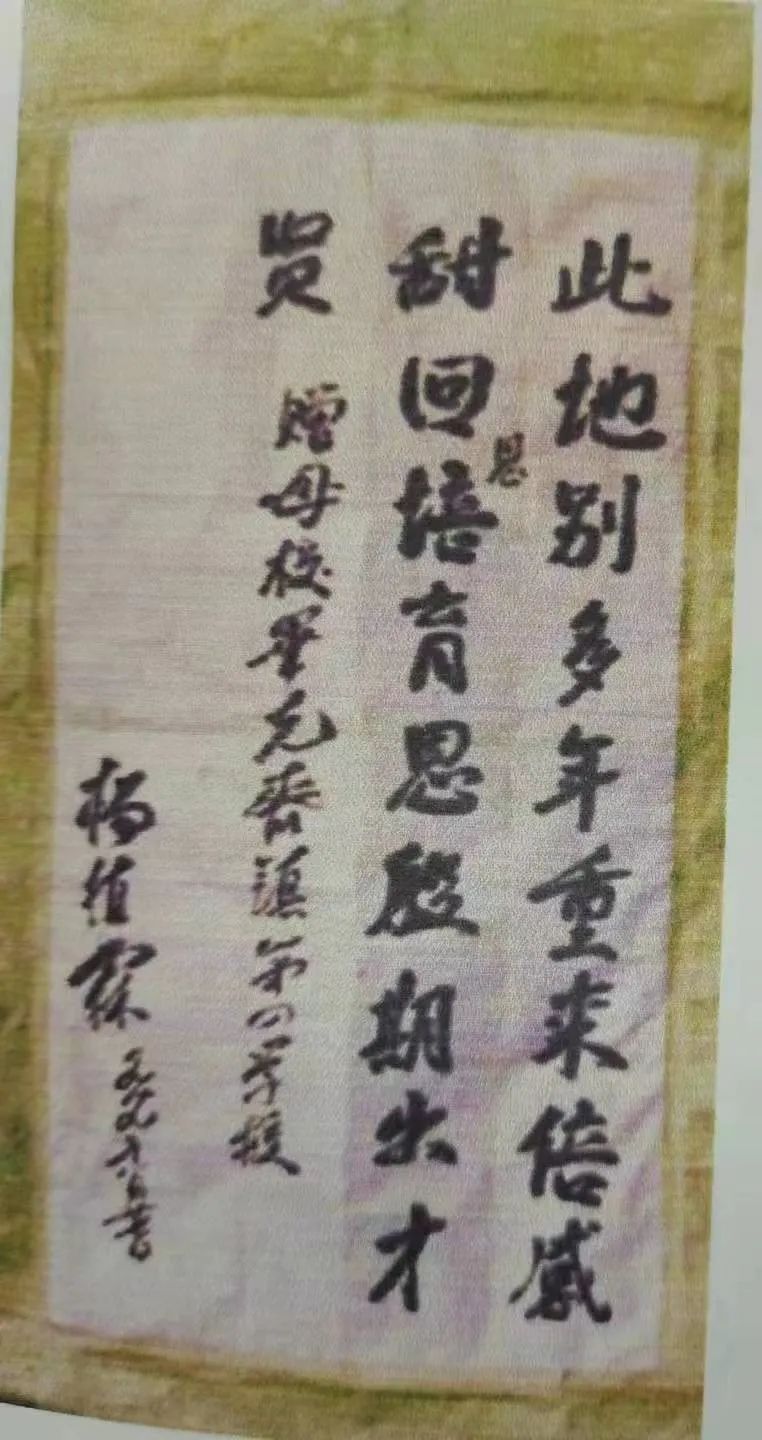 此地别多年重来倍感
甜回思培育恩殷期出才
贤
赠母校畢克齊镇第四学校
杨植霖
书